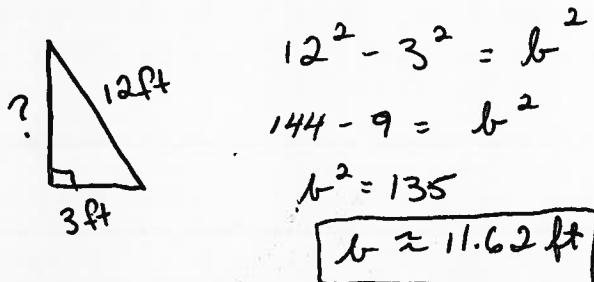 12ft
?
3ft
12² - 3² = b²
144 - 9 = b²
b² = 135
b ≈ 11.62 ft